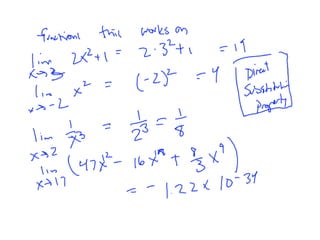 functions this works on
lim x→3 2x²+1 = 2·3²+1 = 19
lim x→-2 x² = (-2)² = 4
Direct
Substitution
Property
lim x→2 1/x³ = 1/2³ = 1/8
lim x→17 (47x¹² - 16x¹⁸ + 8/3 x⁹)
= -1.22 × 10⁻³⁴